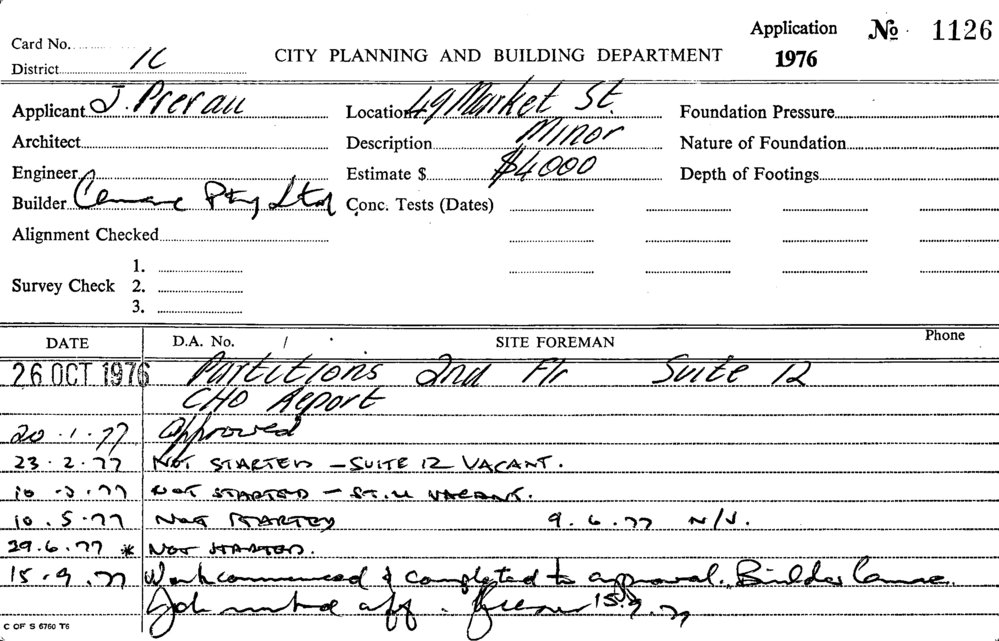 Application № 1126
Card No.
CITY PLANNING AND BUILDING DEPARTMENT 1976
District 1C
Applicant J. Prerau Location 49 Market St. Foundation Pressure
Architect Description Minor Nature of Foundation
Engineer Estimate $ $4000 Depth of Footings
Builder Pty Ltd Conc. Tests (Dates)
Alignment Checked
Survey Check 1.
2.
3.
DATE D.A. No. / SITE FOREMAN Phone
26 OCT 1976 Partitions 2nd Flr Suite 12
CHO Report
20.1.77 Approved
23.2.77 NOT STARTED – SUITE 12 VACANT.
10.3.77 NOT STARTED – STILL VACANT.
10.5.77 NOT STARTED 9.6.77 N/S.
29.6.77 * NOT STARTED.
15.9.77 Work commenced & completed to approval. Builder
Job off. 15.9.77
C OF S 6760 T6